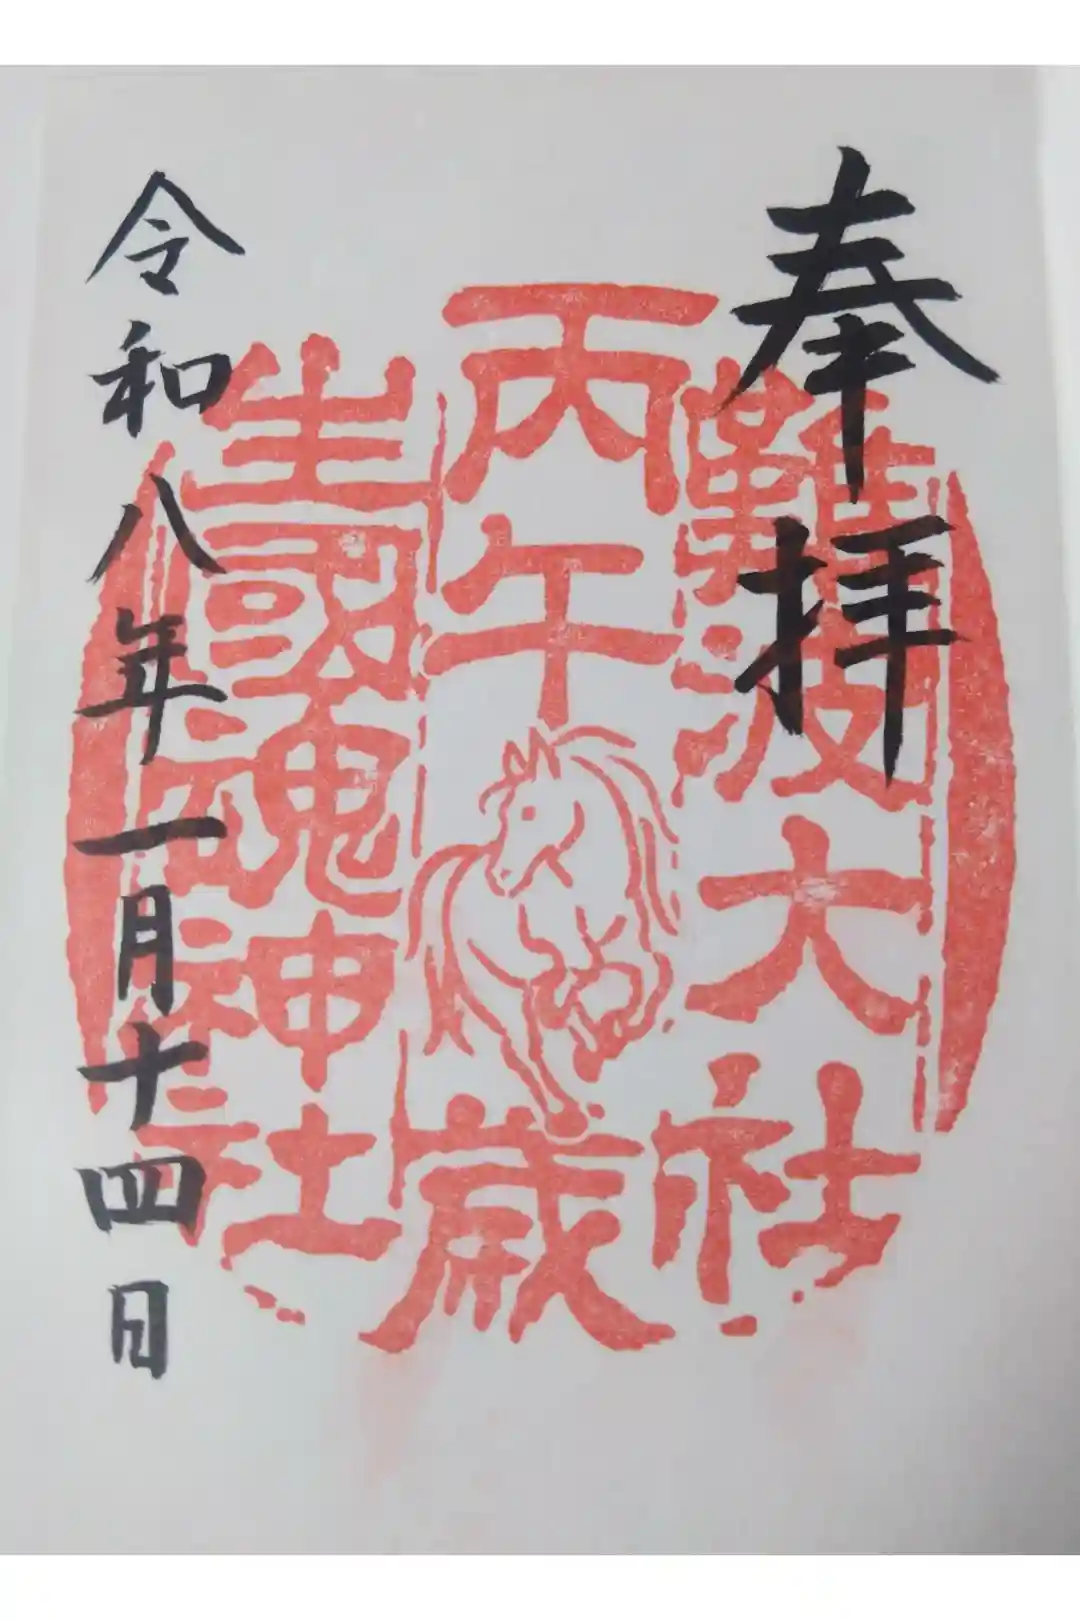 奉拝
難波大社
丙午歳
生國魂神社
令和八年一月十四日